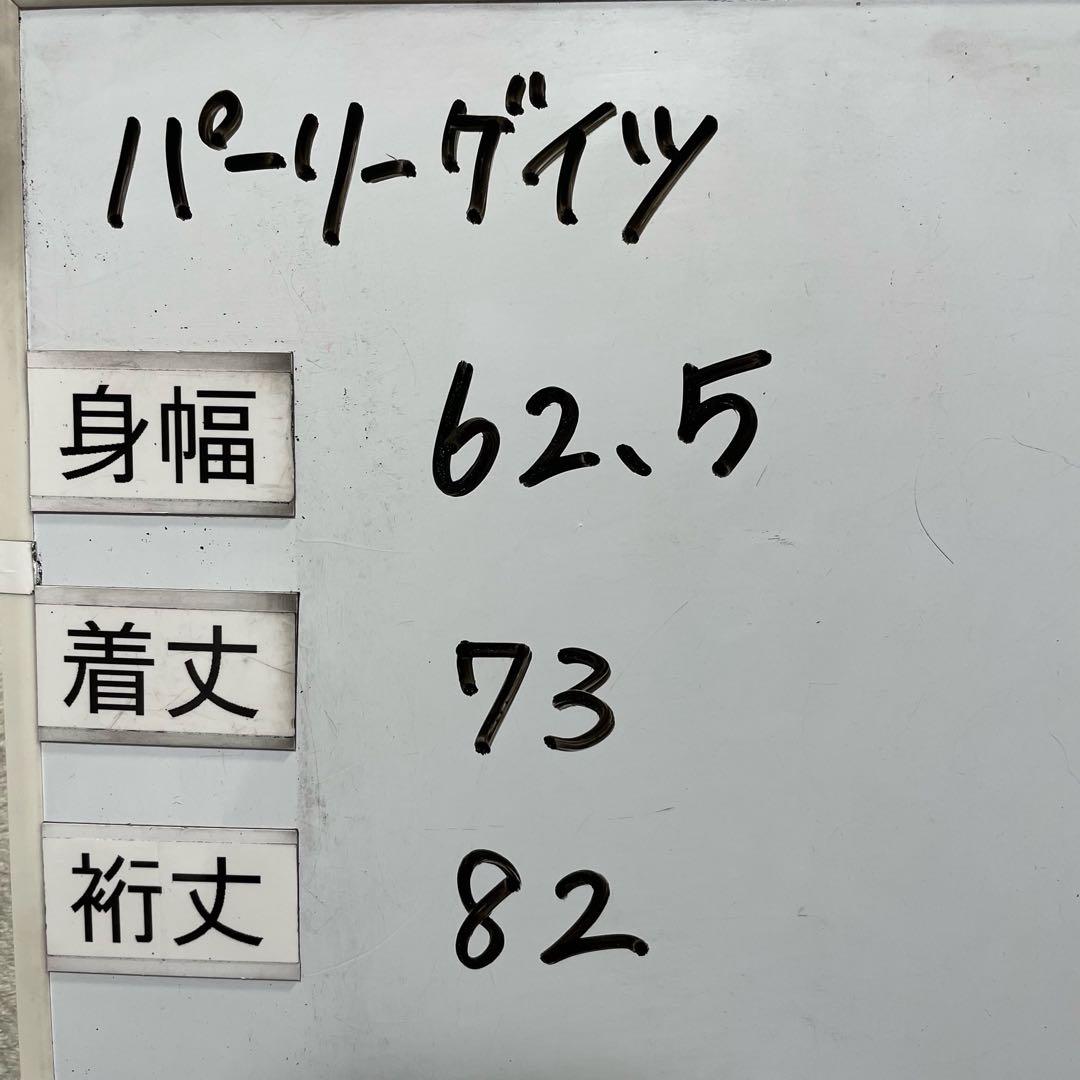 パーリーゲイツ
身幅 62.5
着丈 73
裄丈 82